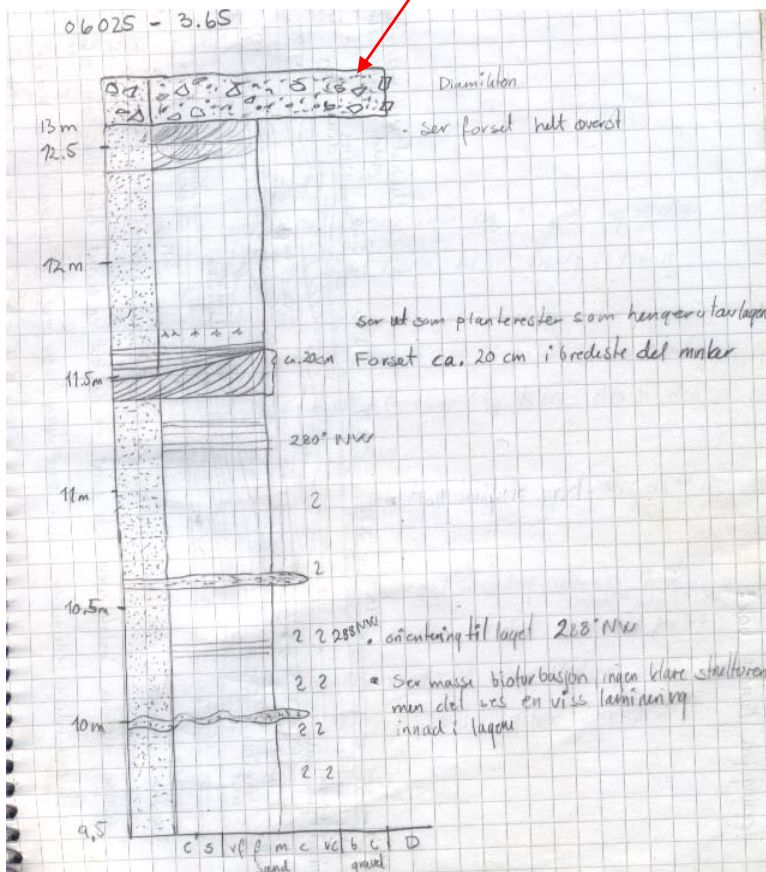 06025 - 3.65
Diamikton
13 m
. ser forset helt øverst
12.5
12 m
ser ut som planterester som henger ut av lagen
ca. 20cm Forset ca. 20 cm i bredeste del
11.5m
280° NW
11m
2
2
10.5m
2 2 288 NW . orientering til laget 288° NW
2 2 • Ser masse bioturbasjon ingen klare strukturer
men det ses en viss laminering
10m 2 2 innad i lagene
2 2
9,5
c s vf f m c vc b c D
sand gravel